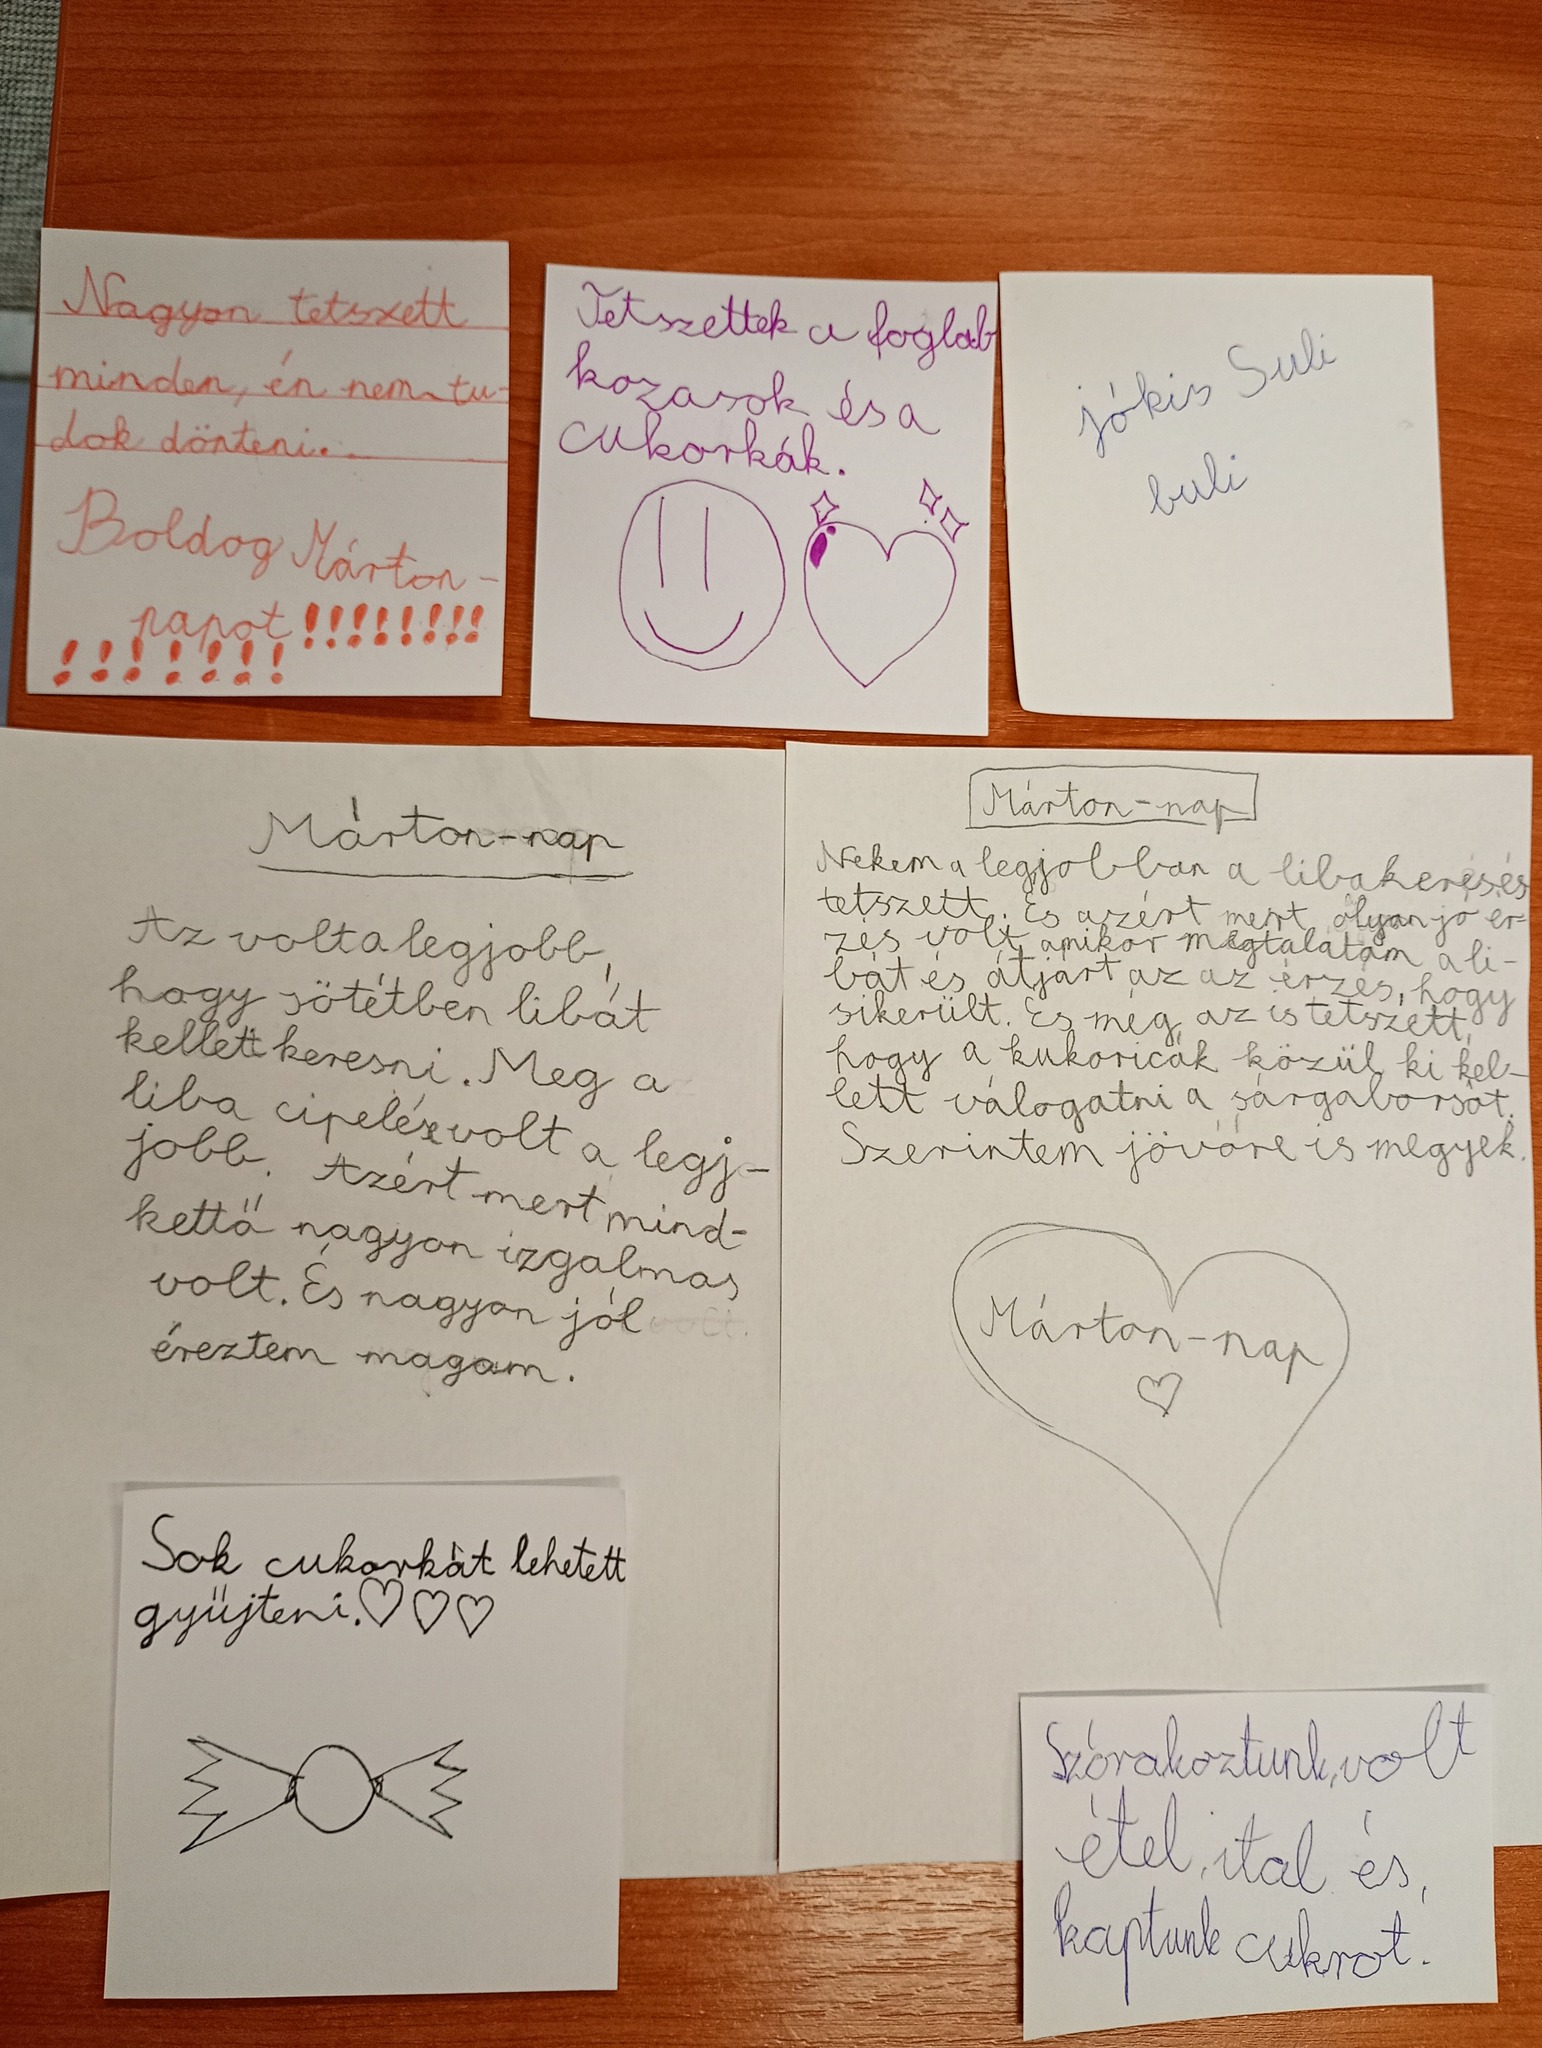 Nagyon tetszett
minden, én nem tu-
dok dönteni.
Boldog Márton-
napot!!!!!!!!
!!!!!!!
Tetszettek a foglab
kozasok és a
cukorkák.
jókis Suli
buli
Márton-nap
Az volt a legjobb,
hogy sötétben libát
kellett keresni. Meg a
liba cipelés volt a legj-
jobb. Azért mert mind-
kettő nagyon izgalmas
volt. És nagyon jól
éreztem magam.
Márton-nap
Nekem a legjobban a libakeresés
tetszett. És azért mert olyan jó ér-
zés volt amikor megtalátam a li-
bát és átjárt az az érzés, hogy
sikerült. És még az is tetszett,
hogy a kukoricák közül ki kel-
lett válogatni a sárgaborsót.
Szerintem jövőre is megyek.
Márton-nap
Sok cukorkát lehetett
gyűjteni.
Szórakoztunk, volt
étel, ital és,
kaptunk cukrot.